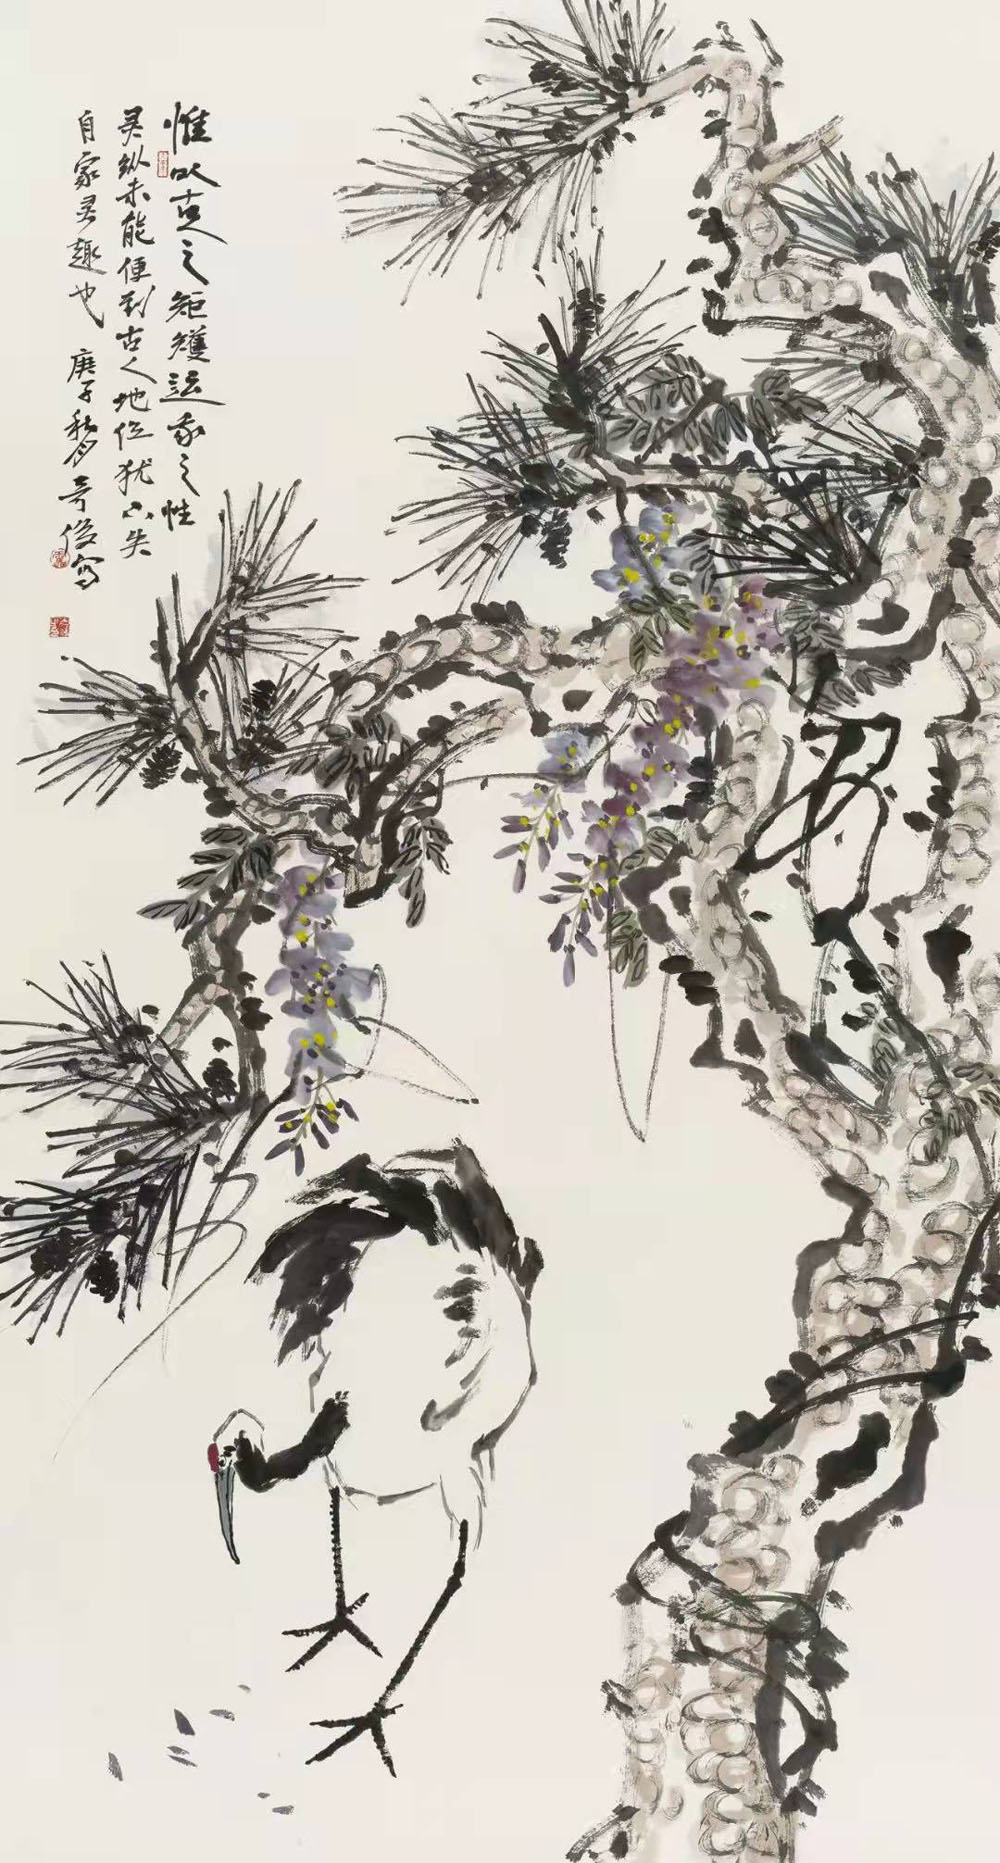 惟以古之矩矱运我之性
灵纵未能便到古人地位犹不失
自家灵趣也 庚子秋月奇俊写